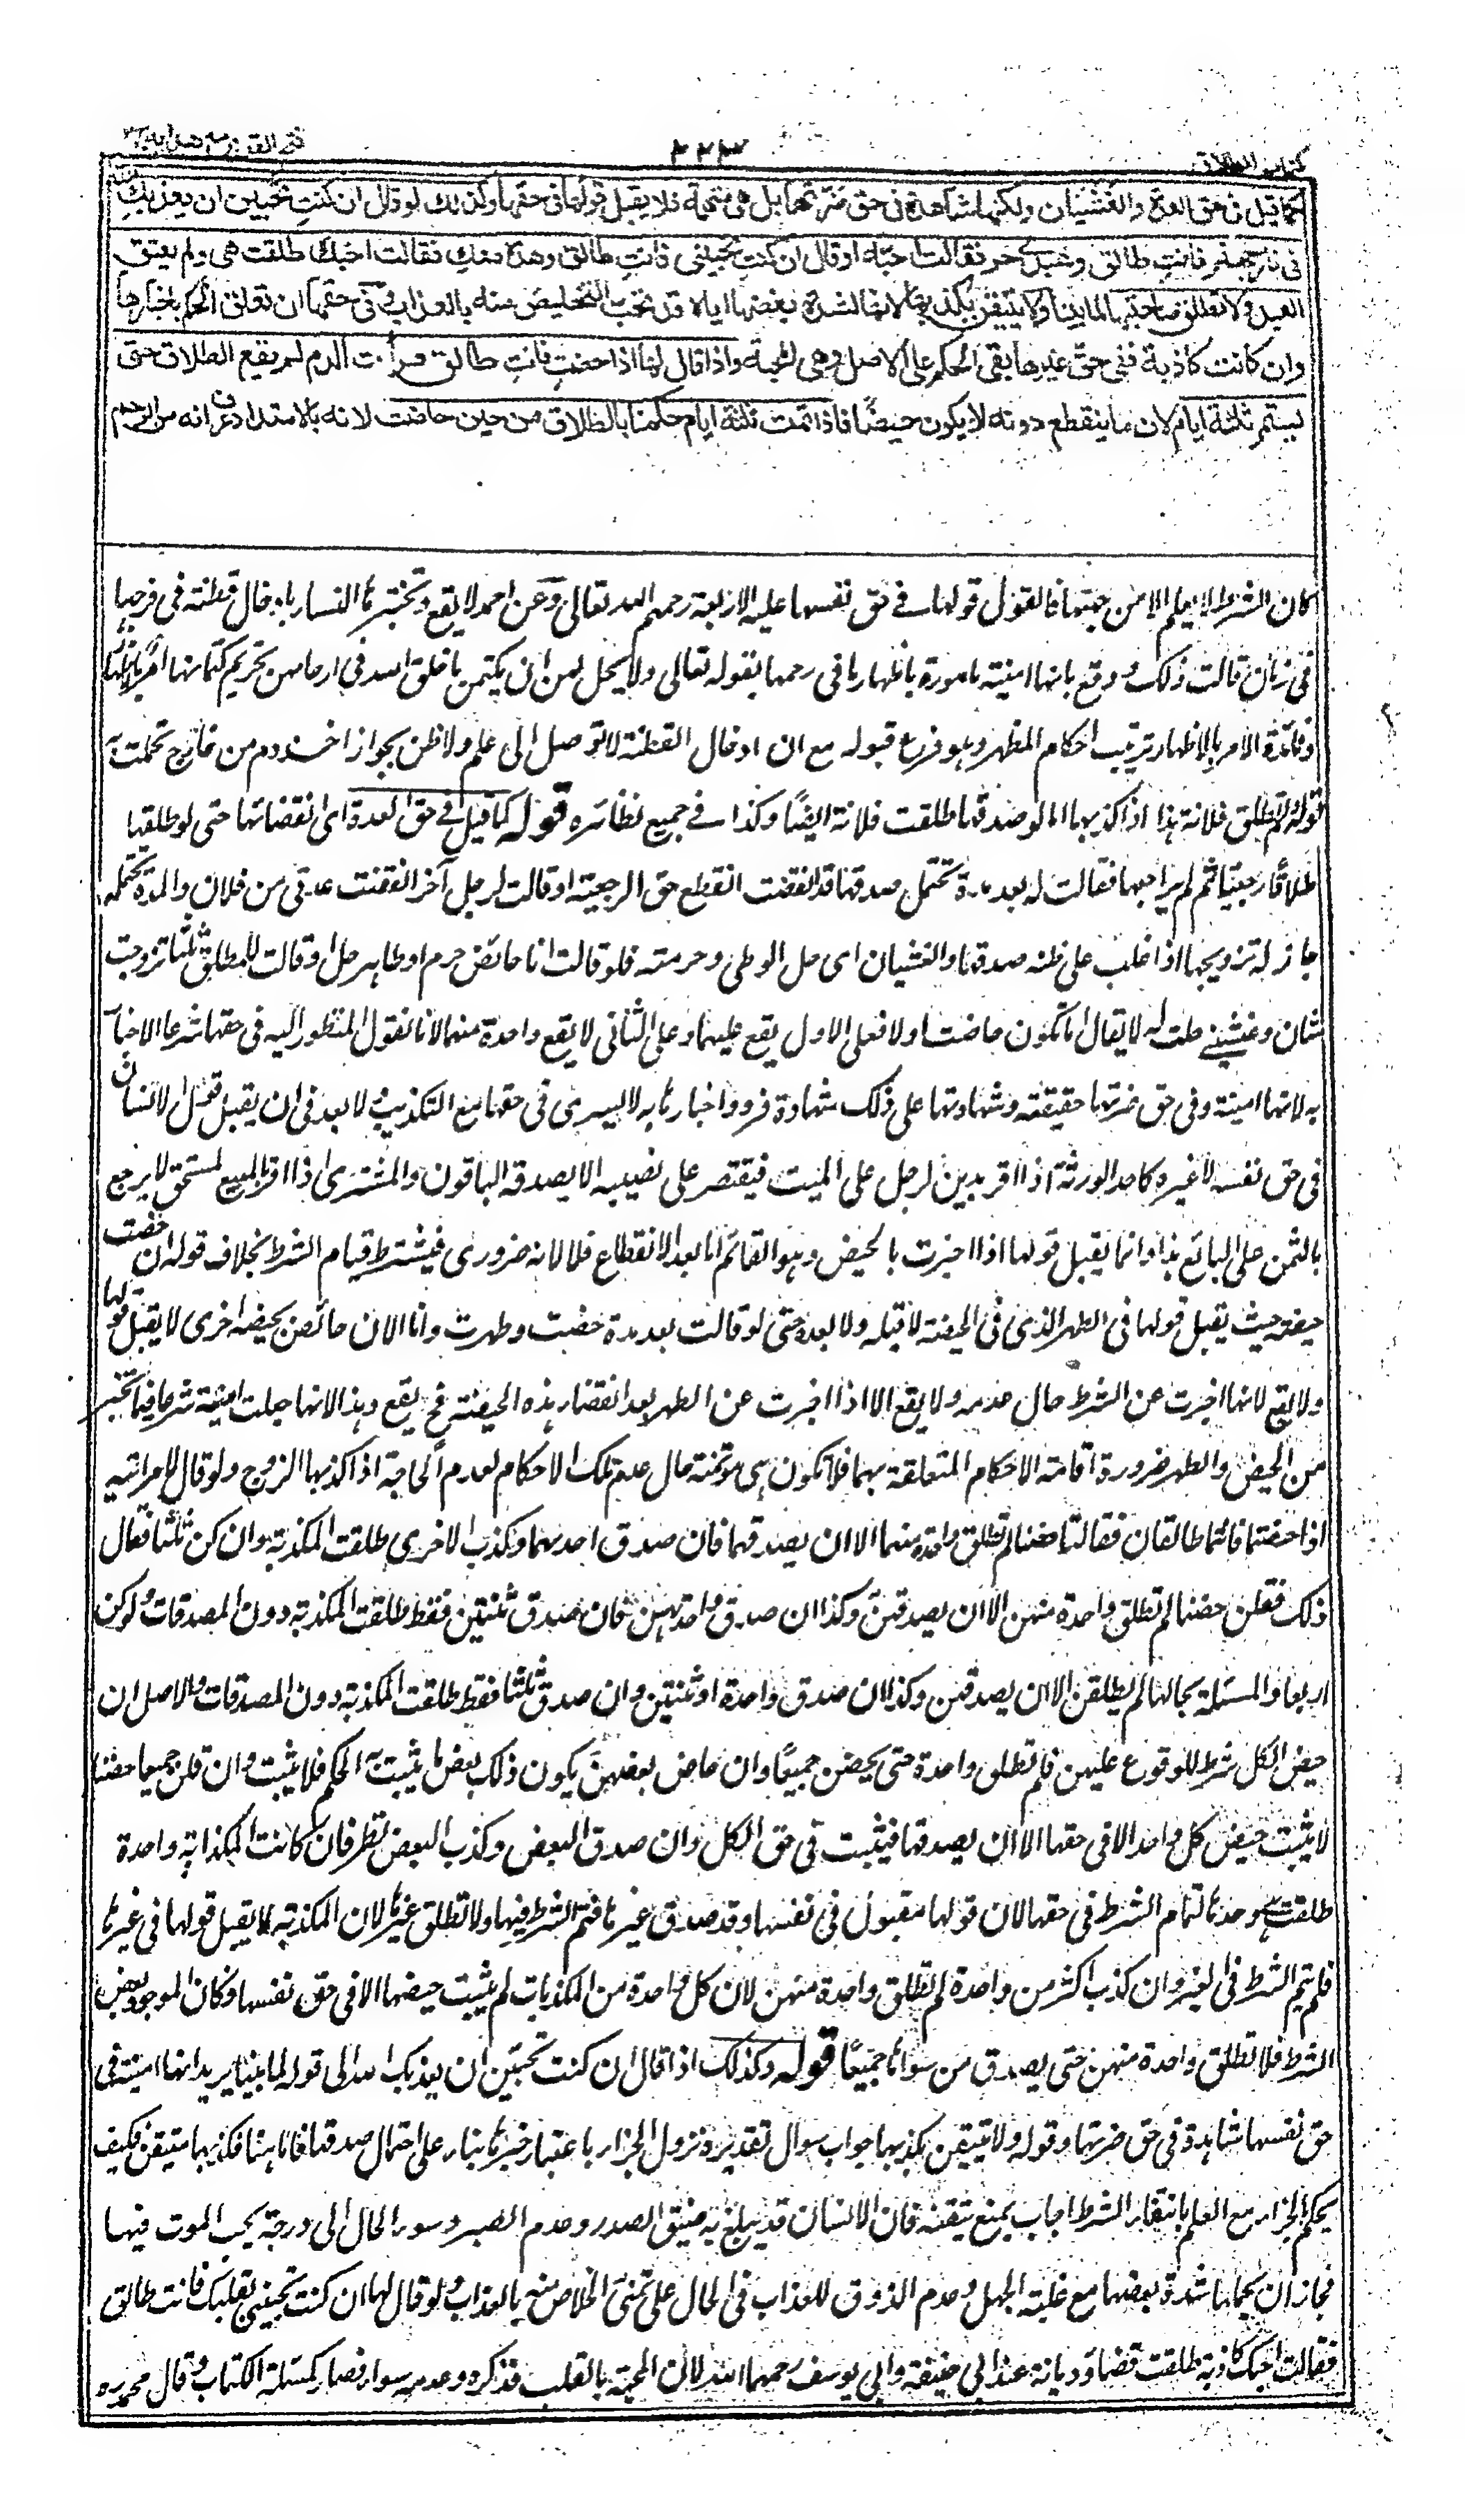 كتاب الطلاق
٢٢٣
فتح القدير مع هدايه
كما قيل في حق العدة والغشيان ولكنها شاهدة في حق ضرتها بل هي متهمة فلا يقبل قولها في حقها وكذلك لو قال ان كنت تحبين ان يعذبك الله
في نار جهنم فانت طالق وعبدي حر فقالت احبه او قال ان كنت تحبيني فانت طالق وهذه معك فقالت احبك طلقت هي ولم يعتق
العبد ولا تطلق صاحبتها لما بينا ولا يتيقن بكذبها لانها لشدة بغضها اياه قد تحب التخليص منه بالعذاب وفي حقها ان تعلق الحكم باخبارها
وان كانت كاذبة ففي حق غيرها بقي الحكم على الاصل وهي المحبة واذا قال لها اذا حضت فانت طالق فرأت الدم لم يقع الطلاق حتى
يستمر ثلثة ايام لان ما ينقطع دونه لا يكون حيضا فاذا تمت ثلثة ايام حكمنا بالطلاق من حين حاضت لانه بالامتداد عرف انه من الرحم
كان الشرط لا يعلم الا من جهتها فالقول قولها في حق نفسها عليه الاربعة رحمهم الله تعالى وعن احمد لا يقع وتختبرها النساء بادخال قطنة في فرجها
في زمان قالت ذلك ودفع بانها امينة مامورة باظهار ما في رحمها بقوله تعالى ولا يحل لهن ان يكتمن ما خلق الله في ارحامهن تحريم كتمانها امر باظهار
وفائدة الامر بالاظهار ترتيب احكام المظهر وهو فرع قبوله مع ان ادخال القطنة لا توصل الى علم ولا ظن بجواز اخذ دم من خارج تحملت به
قوله ولم تطلق فلانة هذا اذا كذبها اما لو صدقها طلقت فلانة ايضا وكذا في جميع نظائره قوله كما قيل في حق العدة اى انقضائها حتى لو طلقها
طلاقا رجعيا ثم لم يراجعها فقالت له بعد مدة تحتمل صدقها قد انقضت انقطع حق الرجعية او قالت لرجل آخر انقضت عدتى من فلان والمدة تحتمله
جاز له تزويجها اذا غلب على ظنه صدقها والغشيان اى حل الوطى وحرمته فلو قالت انا حائض حرم او طاهر حل او قالت للمطلق ثلثا تزوجت
بثان وغشيني حلت له لا يقال اما تكون حاضت اولا فعلى الاول يقع عليهما وعلى الثانى لا يقع واحدة منهما لانا نقول المنظور اليه في حقها شرعا الاخبار
به لانها امينة وفي حق ضرتها حقيقته وشهادتها على ذلك شهادة فرد واخبارها به لا يسرى في حقها مع التكذيب ولا بعد في ان يقبل قول الانسان
في حق نفسه لا غيره كاحد الورثة اذا اقر بدين لرجل على الميت فيقتصر على نصيبه الا يصدقه الباقون والمشترى اذا اقر بالمبيع لمستحق لا يرجع
بالثمن على البائع هذا وانما يقبل قولها اذا اخبرت بالحيض وهو القائم اما بعد الانقطاع فلا لانه ضرورى فيشترط قيام الشرط بخلاف قوله ان حضت
حيضة حيث يقبل قولها في الطهر الذى في الحيضة لا قبله ولا بعده حتى لو قالت بعد مدة حضت وطهرت وانا الان حائض بحيضة اخرى لا يقبل قولها
ولا يقع لانها اخبرت عن الشرط حال عدمه ولا يقع الا اذا اخبرت عن الطهر بعد انقضاء هذه الحيضة فح يقع وهذا لانها جعلت امينة شرعا فيما تخبر
من الحيض والطهر ضرورة اقامة الاحكام المتعلقة بهما فلا تكون هى مؤتمنة حال عدم تلك الاحكام لعدم الحاجة اذا كذبها الزوج ولو قال لامراتيه
اذا حضتما فانتما طالقان فقالتا حضنا لم تطلق واحدة منهما الا ان يصدقهما فان صدق احدهما وكذب الاخرى طلقت المكذبة وان كن ثلثا فقال
ذلك فقلن حضنا لم تطلق واحدة منهن الا ان يصدقهن وكذا ان صدق واحدتهن فان صدق ثنتين فقط طلقت المكذبة دون المصدقات ولو كن
اربعا والمسئلة بحالها لم يطلقن الا ان يصدقهن وكذا ان صدق واحدة او ثنتين وان صدق ثلثا فقط طلقت المكذبة دون المصدقات والاصل ان
حيض الكل شرط للوقوع عليهن فلم تطلق واحدة حتى يحضن جميعا وان حاض بعضهن يكون ذلك بعض ما يثبت به الحكم فلا يثبت وان قلن جميعا حضنا
لا يثبت حيض كل واحد الا في حقها الا ان يصدقها فيثبت في حق الكل وان صدق البعض وكذب البعض نظر فان كانت المكذبة واحدة
طلقت هى وحدها لتمام الشرط في حقها لان قولها مقبول في نفسها وقد صدق غيرها فتم الشرط فيها ولا تطلق غيرها لان المكذبة لا يقبل قولها في غيرها
فلم يتم الشرط في الغير وان كذب اكثر من واحدة لم تطلق واحدة منهن لان كل واحدة من المكذبات لم يثبت حيضها الا في حق نفسها وكان الموجود بعض
الشرط فلا تطلق واحدة منهن حتى يصدق من سواها جميعا قوله وكذلك اذا قال ان كنت تحبين ان يعذبك الله الى قوله لما بينا يريد انها امينة في
حق نفسها شاهدة في حق ضرتها وقوله ولا تيقن بكذبها جواب سوال تقديره نزول الجزاء باعتبار خبرها بناء على احتمال صدقها فاما هنا فكذبها متيقن فكيف
يحكم بالجزاء مع العلم بانتفاء الشرط اجاب بمنع تيقنه فان الانسان قد يبلغ به ضيق الصدر وعدم الصبر وسوء الحال الى درجة يحب الموت فيها
فجاز ان يحملها شدة بغضها مع غلبة الجهل وعدم الذوق للعذاب في الحال على تمنى الخلاص منه بالعذاب ولو قال لها ان كنت تحبينى بقلبك فانت طالق
فقالت احبك كاذبة طلقت قضاء وديانة عند ابى حنيفة وابى يوسف رحمهما الله لان المحبة بالقلب فذكره وعدمه سواء فصار كمسئلة الكتاب وقال محمد ره